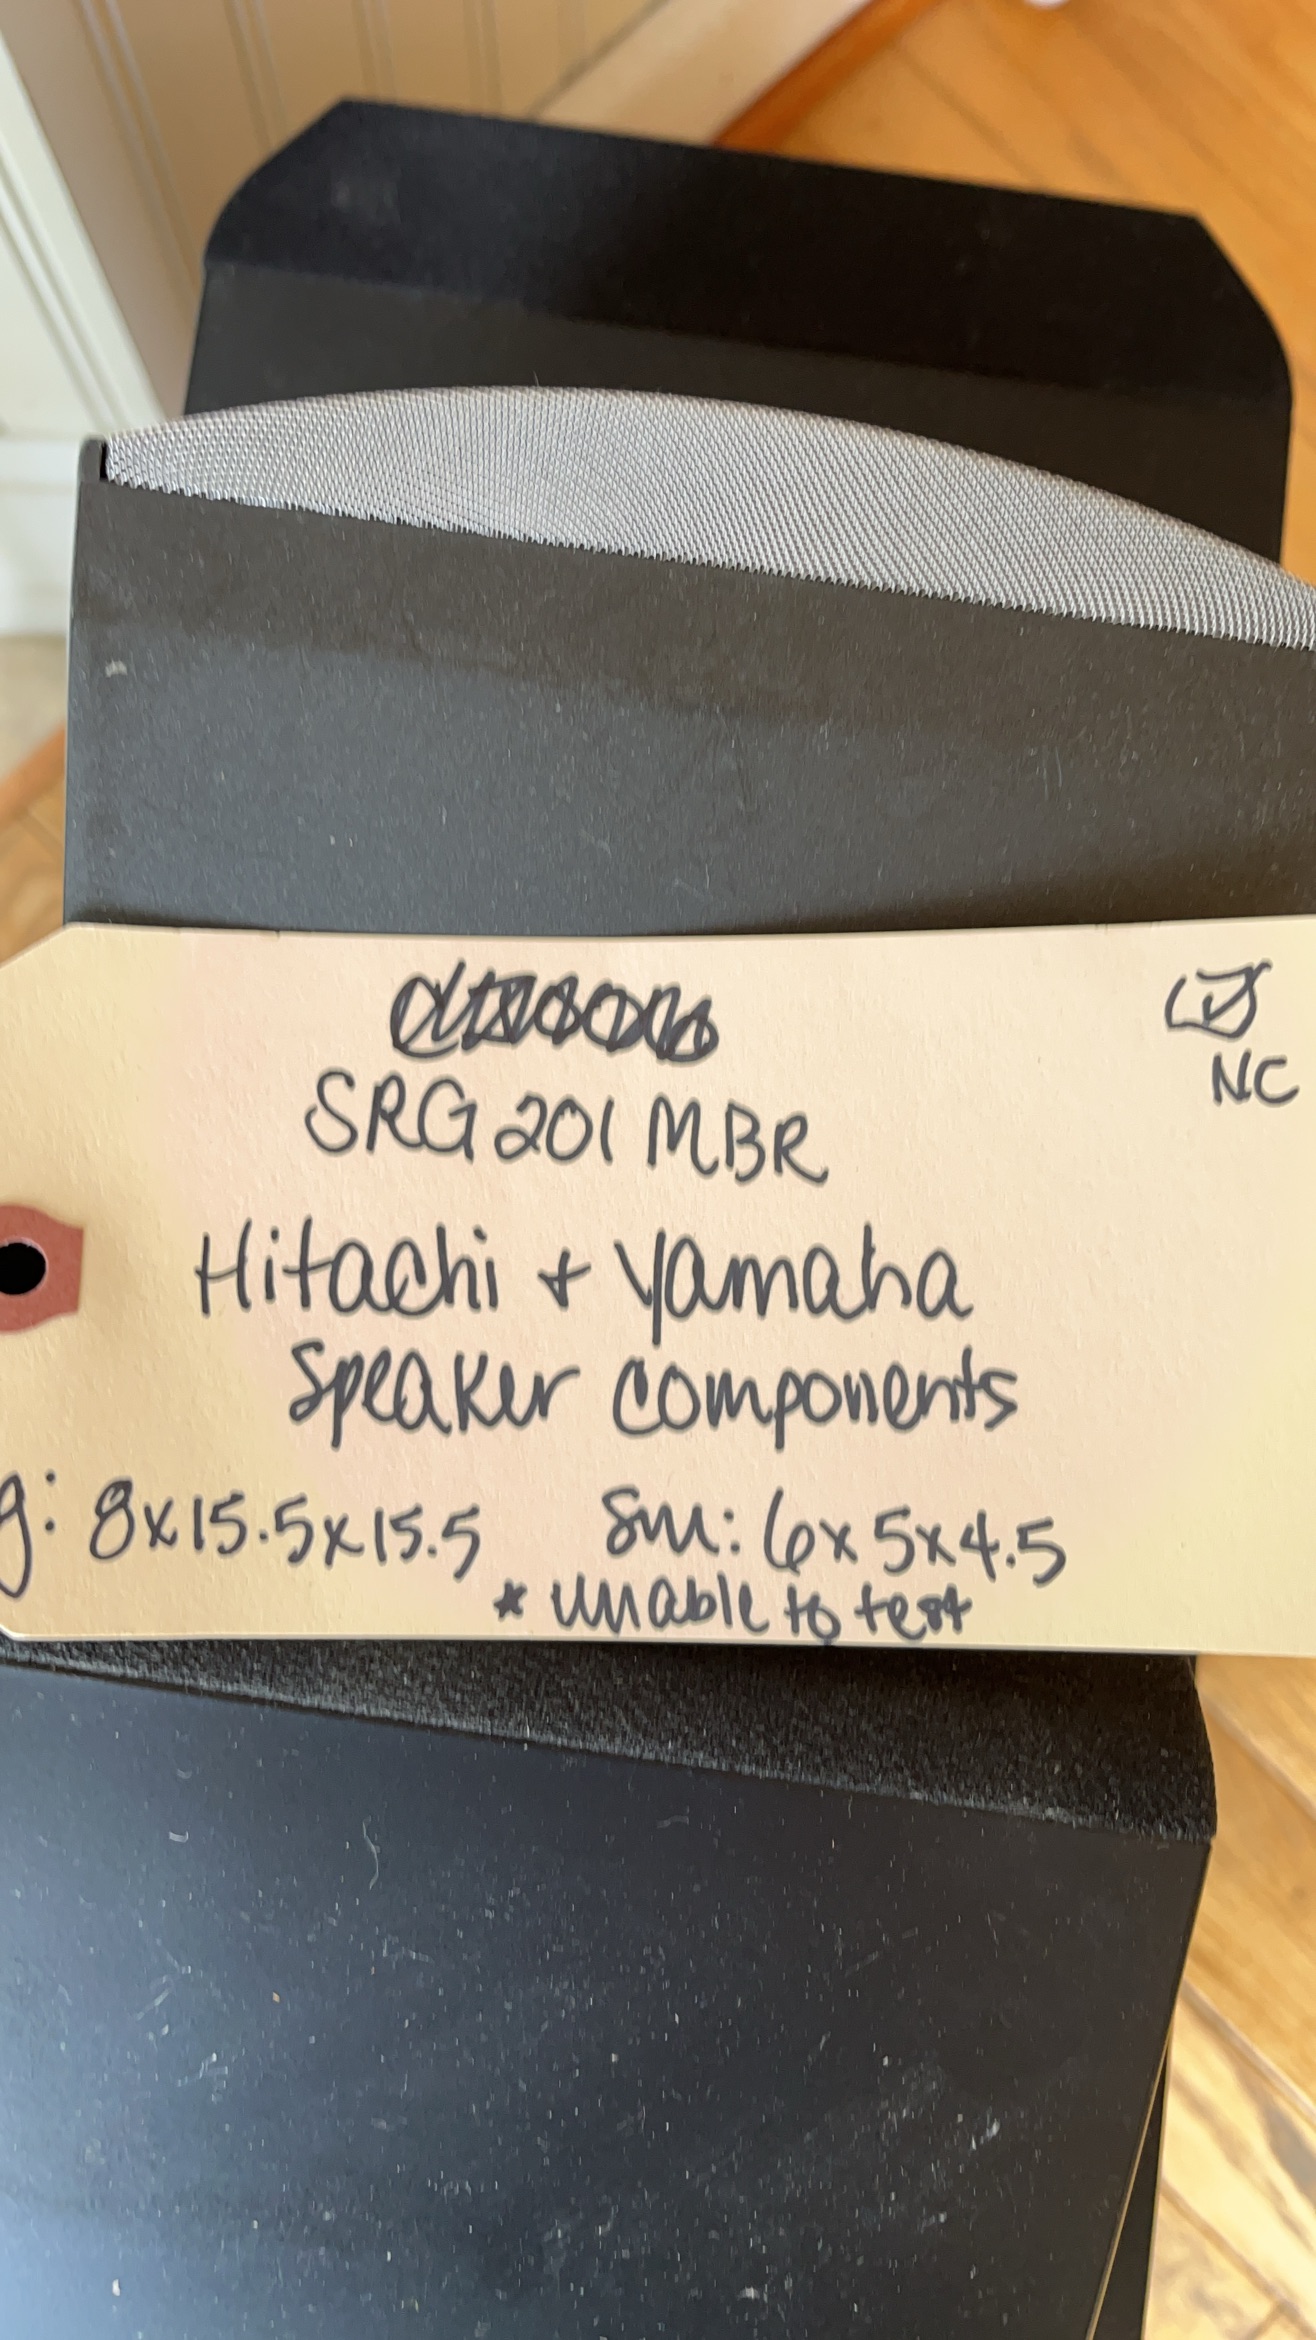 NC
SRG201MBR
Hitachi + Yamaha
Speaker components
g: 8x15.5x15.5 Sm: 6x5x4.5
* unable to test